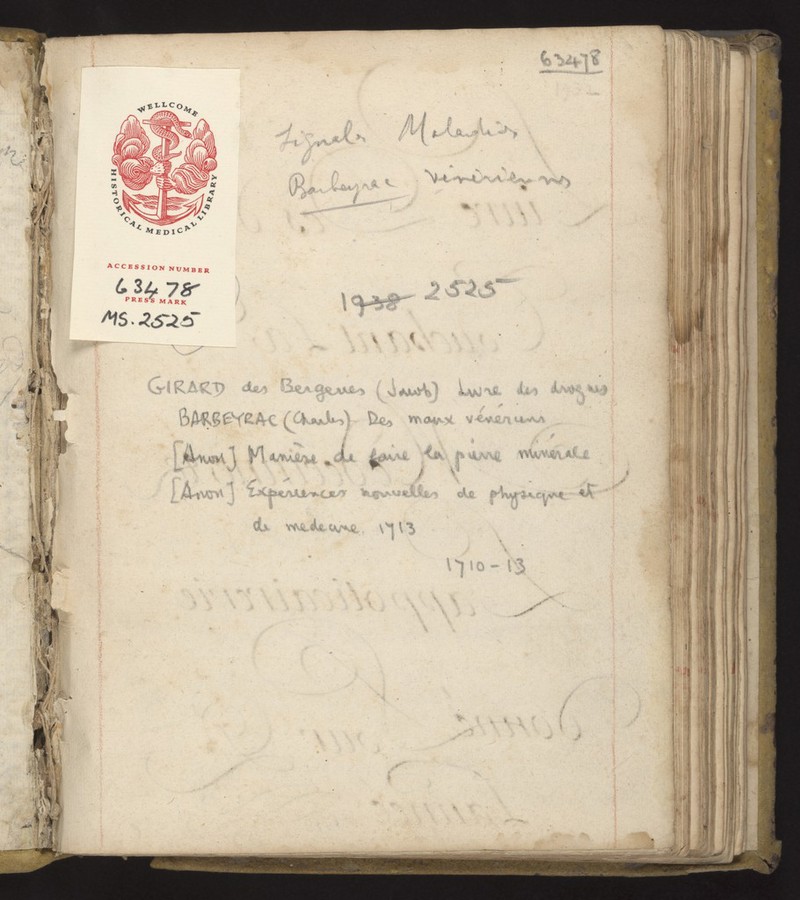 63478
1932
WELLCOME
HISTORICAL MEDICAL LIBRARY
ACCESSION NUMBER
63478
PRESS MARK
MS.2525
Maladies
Barbeyrac vénériennes
1938 2525
GIRARD des Bergeries (Jacob) Livre des drogues
BARBEYRAC (Charles) Des maux vénériens
[Anon] Manière de faire la pierre minérale
[Anon] Expériences nouvelles de physique et
de medecine. 1713
1710-13